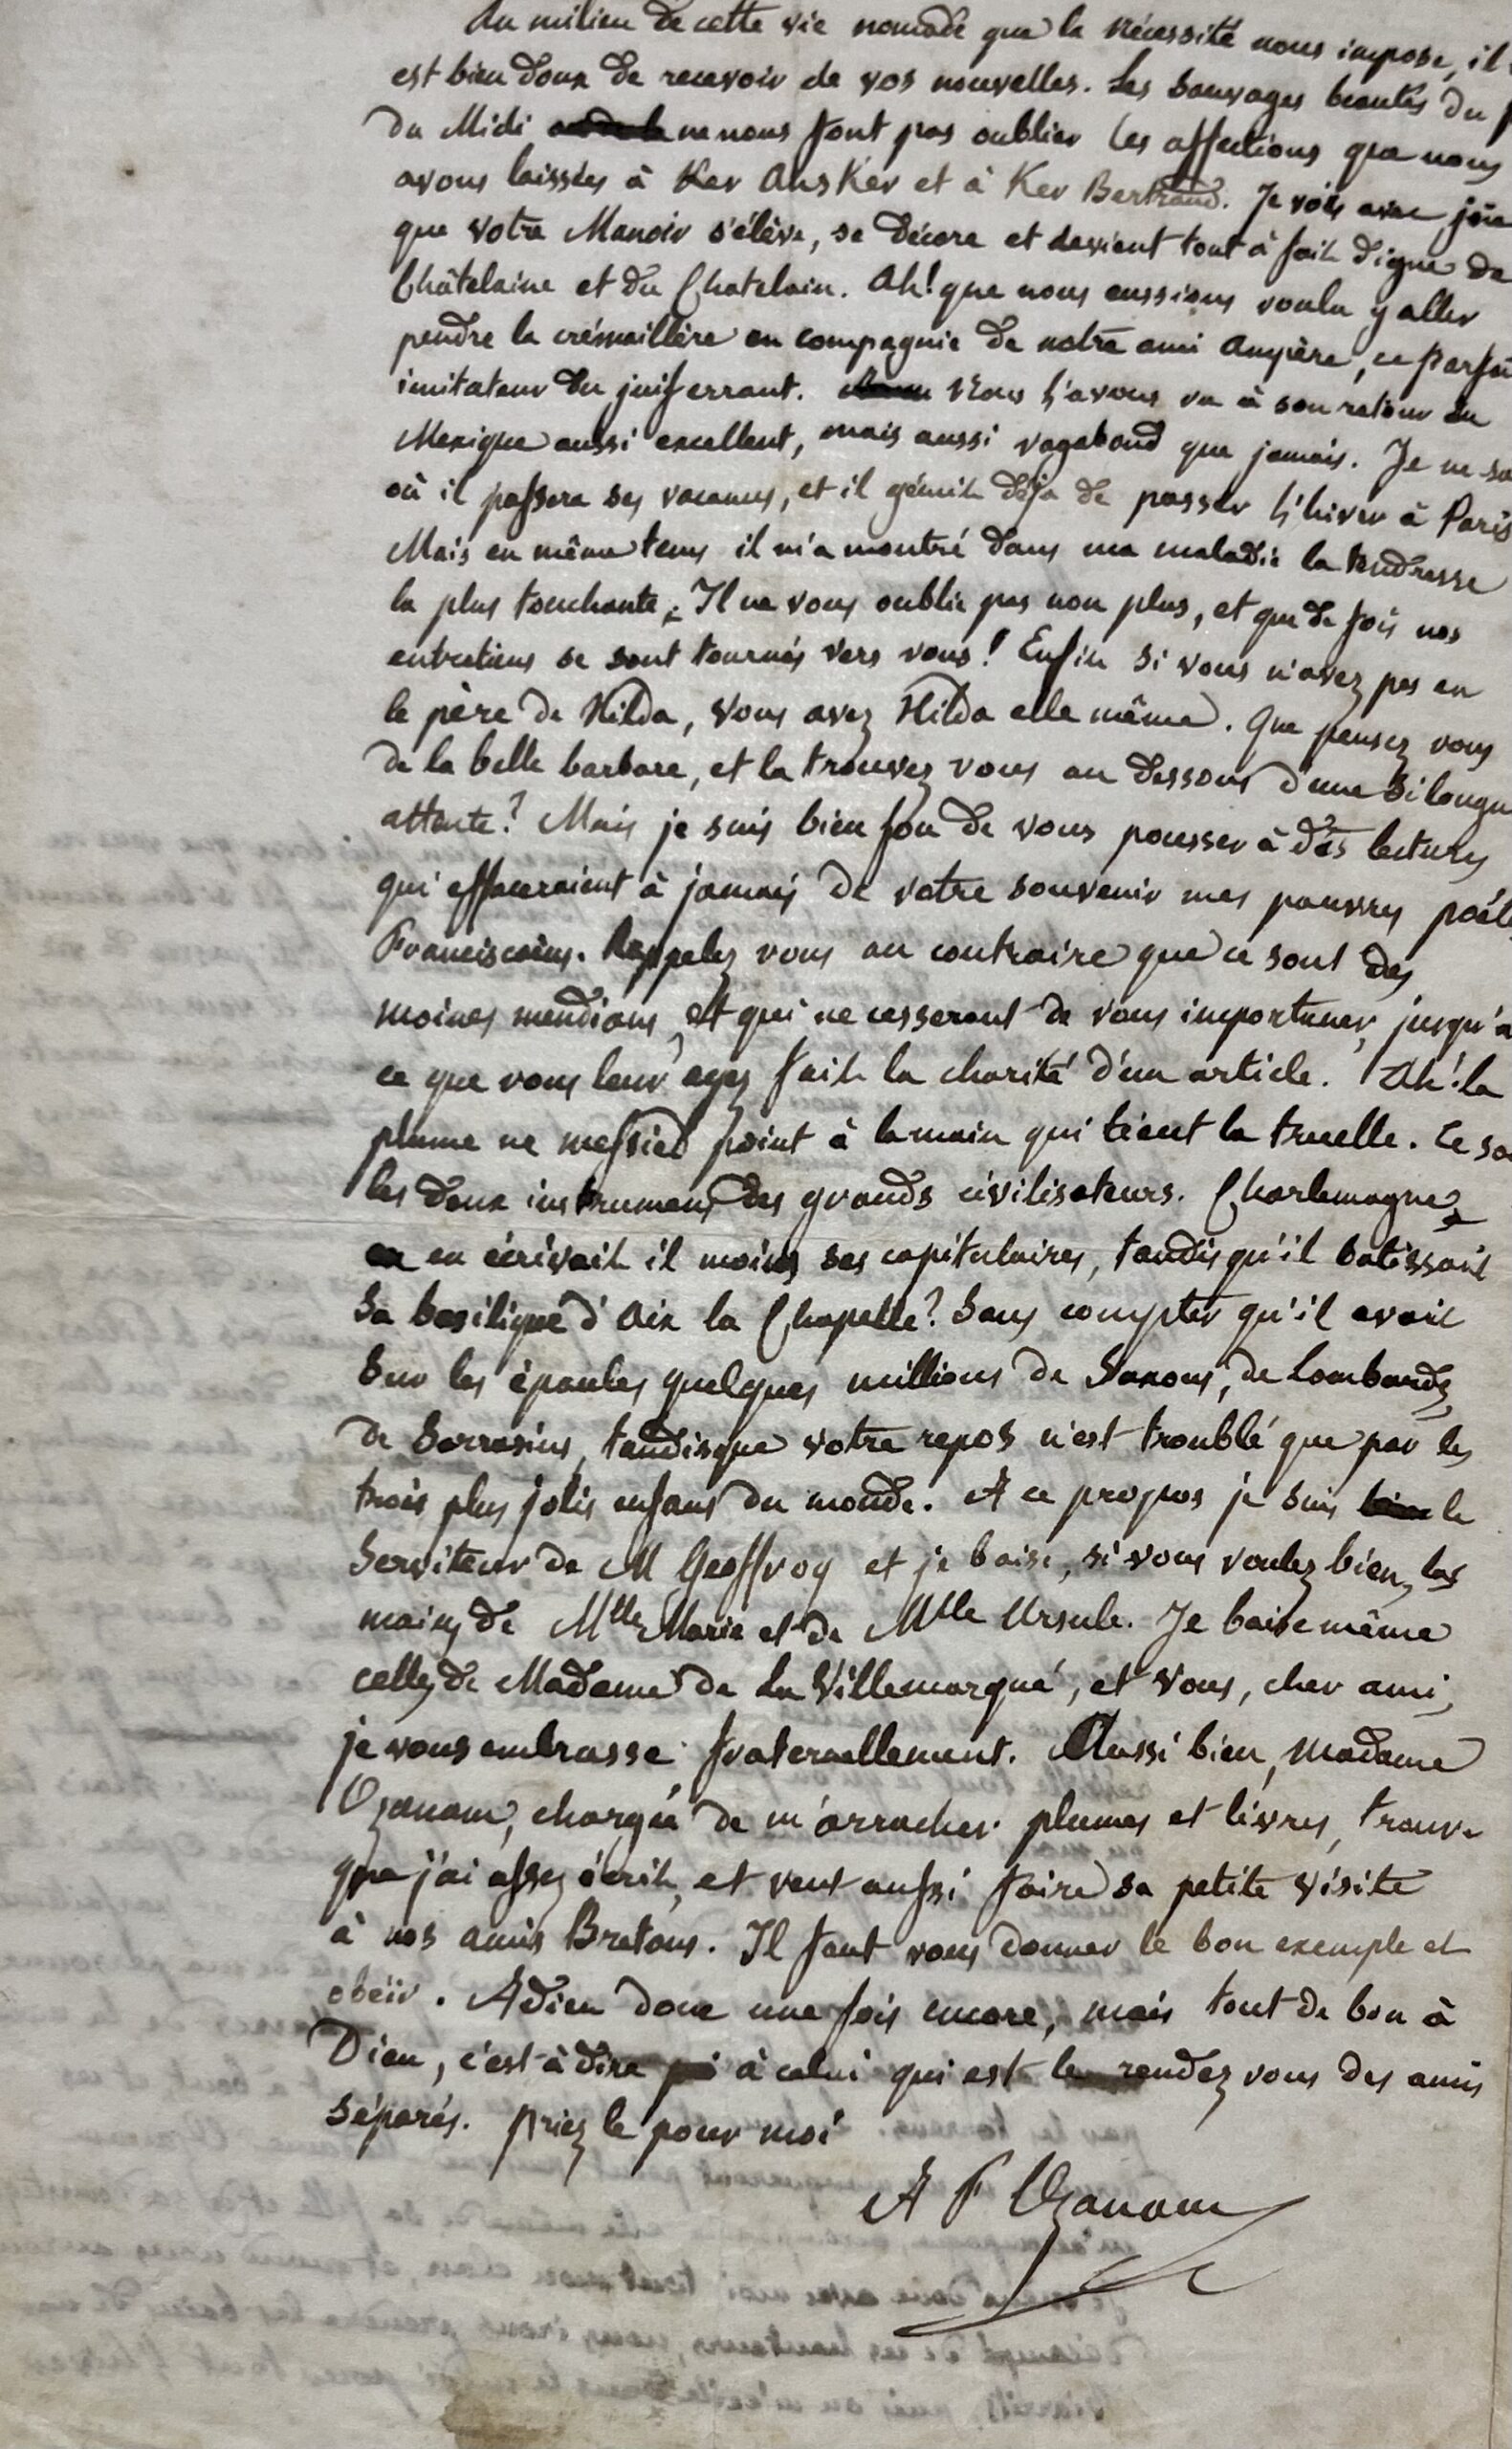 Au milieu de cette vie nomade que la nécessité nous impose, il
est bien doux de recevoir de vos nouvelles. Les sauvages beautés du
du Midi ne nous font pas oublier les affections que nous
avons laissées à Ker Ansker et à Ker Bertrand. Je vois avec joie
que votre Manoir s'élève, se décore et devient tout à fait digne de
Châtelaine et du Chatelain. Ah! que nous eussions voulu y aller
pendre la crémaillère en compagnie de notre ami Ampère, ce parfai
imitateur du juif errant. Nous l'avons vu à son retour du
Mexique aussi excellent, mais aussi vagabond que jamais. Je ne sa
où il passera ses vacances, et il gémit déja de passer l'hiver à Paris
Mais en même tems il m'a montré dans ma maladie la tendresse
la plus touchante. Il ne vous oublie pas non plus, et que de fois nos
entretiens se sont tournés vers vous! Enfin si vous n'avez pas eu
le père de Hilda, vous avez Hilda elle même. Que pensez vous
de la belle barbare, et la trouvez vous au dessous d'une si longu
attente? Mais je suis bien fou de vous pousser à des lectures
qui effaceraient à jamais de votre souvenir mes pauvres poët
Franciscains. Rappelez vous au contraire que ce sont des
moines mendians, et qui ne cesseront de vous importuner, jusqu'a
ce que vous leur ayez fait la charité d'un article. Ah! la
plume ne messied point à la main qui tient la truelle. Ce so
les deux instrumens des grands civilisateurs. Charlemagne
en écrivait il moins ses capitulaires, tandis qu'il batissait
sa basilique d'Aix la Chapelle? Sans compter qu'il avait
sur les épaules quelques millions de Saxons, de Lombards,
de Sarrasins, tandisque votre repos n'est troublé que par les
trois plus jolis enfans du monde. A ce propos je suis le
serviteur de M Geoffroy et je baise, si vous voulez bien, les
mains de Mlle Marie et de Mlle Ursule. Je baise même
celles de Madame de La Villemarqué, et vous, cher ami,
je vous embrasse fraternellement. Aussi bien, Madame
Ozanam, chargée de m'arracher plumes et livres, trouve
que j'ai assez écrit, et veut aussi faire sa petite visite
à nos amis Bretons. Il faut vous donner le bon exemple et
obéir. Adieu donc une fois encore, mais tout de bon à
Dieu, c'est à dire à celui qui est le rendez vous des amis
séparés. priez le pour moi
A F Ozanam